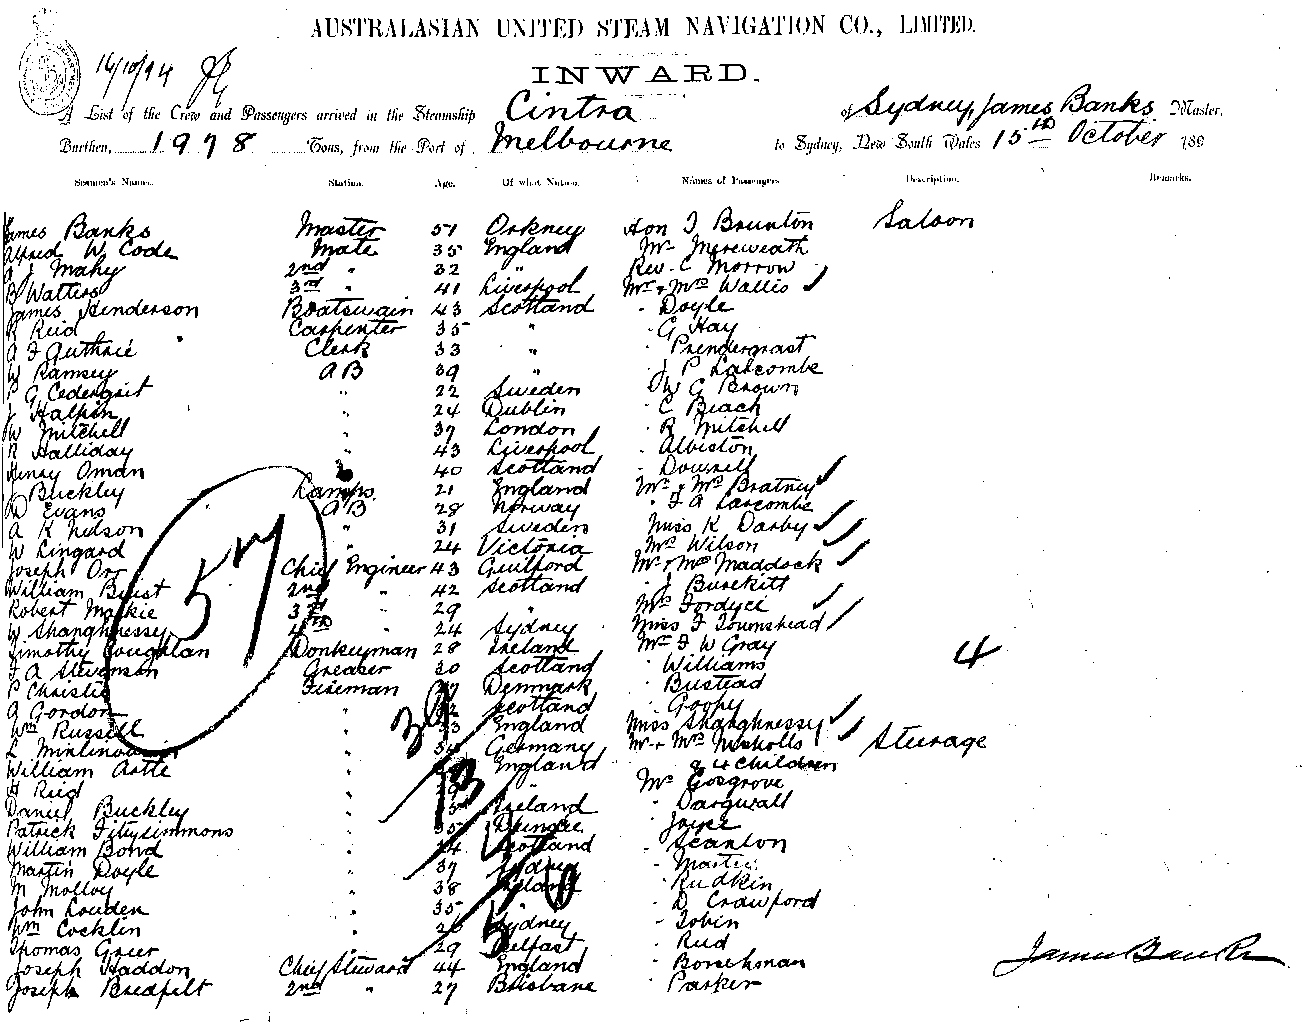 AUSTRALASIAN UNITED STEAM NAVIGATION CO., LIMITED.
16/10/94
INWARD.
A List of the Crew and Passengers arrived in the Steamship Cintra of Sydney, James Banks Master,
Burthen, 1978 Tons, from the Port of Melbourne to Sydney, New South Wales 15th October 189
Seamen's Names. Station. Age. Of what Nation. Names of Passengers Description. Remarks.
James Banks Master 51 Orkney Hon T Brunton Saloon
Alfred W Code Mate 35 England Mr Mereweath
Mahy 2nd " 32 " Rev. C Morrow
B Watters 3rd " 41 Liverpool Mr & Mrs Wallis
James Henderson Boatswain 43 Scotland " Doyle
R Reid Carpenter 35 " " G Hay
A F Guthrie Clerk 33 " " Prendergrast
W Ramsey AB 39 " " J P Larcombe
G Cederqvist " 22 Sweden " W G Brown
J Halpin " 24 Dublin " C Beach
W Mitchell " 37 London " R Mitchell
R Halliday " 43 Liverpool " Albiston
Henry Oman " 40 Scotland
J Buckley Lamps 21 England Mr & Mrs Bratney
D Evans AB 28 Norway " F A Larcombe
A K Nelson " 31 Sweden Miss K Darby
W Lingard " 24 Victoria Mrs Wilson
Joseph Orr Chief Engineer 43 Guilford Mr & Mrs Maddock
William Buist 2nd " 42 Scotland " J Burkitt
Robert Mackie 3rd " 29 " Mrs Fordyce
W Shanghnessy 4th " 24 Sydney Miss F Townshead
Timothy Coughlan Donkeyman 28 Ireland Mr F W Gray
F A Stevenson Greaser 30 Scotland " Williams 4
P Christie Fireman 27 Denmark " Bustead
A Gordon " 32 Scotland " Goopy
Wm Russell " 33 England Miss Shanghnessy
" Germany Mr & Mrs Nicholls Steerage
William Astle " England & 4 Children
H Reid " 29 Mr Cosgrove
Daniel Buckley " 35 Ireland " Dargwall
Patrick Fitzsimmons " 35 Dundee " Joyce
William Bond " 24 Scotland " Scanlon
Martin Doyle " 37 Sydney
M Molloy " 38 England " Rudkin
John Louden " 35 " " D Crawford
Wm Cocklin " 26 Sydney " Tobin
Thomas Greer " 29 Belfast " Reid
Joseph Haddon Chief Steward 44 England
Joseph Bredfelt 2nd " 27 Brisbane " Parker
57
39
13
4
56
James Banks